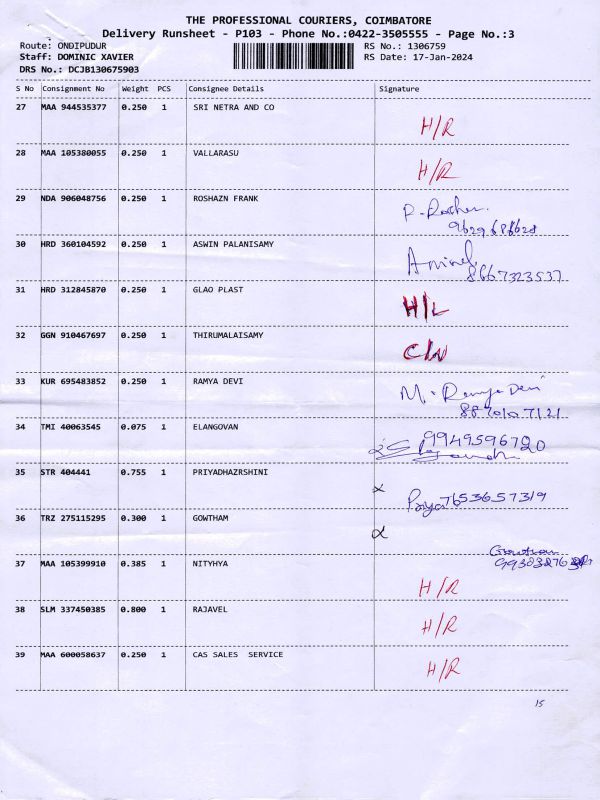 THE PROFESSIONAL COURIERS, COIMBATORE
Delivery Runsheet - P103 - Phone No.:0422-3505555 - Page No.:3
Route: ONDIPUDUR RS No.: 1306759
Staff: DOMINIC XAVIER RS Date: 17-Jan-2024
DRS No.: DCJB130675903
S No Consignment No Weight PCS Consignee Details Signature
27 MAA 944535377 0.250 1 SRI NETRA AND CO
H/R
28 MAA 105380055 0.250 1 VALLARASU
H/R
29 NDA 906048756 0.250 1 ROSHAZN FRANK
30 HRD 360104592 0.250 1 ASWIN PALANISAMY
8667323537
31 HRD 312845870 0.250 1 GLAO PLAST
H/L
32 GGN 910467697 0.250 1 THIRUMALAISAMY
33 KUR 695483852 0.250 1 RAMYA DEVI
M. Ramya Devi
8870107121
34 TMI 40063545 0.075 1 ELANGOVAN
9949596720
35 STR 404441 0.755 1 PRIYADHAZRSHINI
Priya 7653657319
36 TRZ 275115295 0.300 1 GOWTHAM
Gowtham
37 MAA 105399910 0.385 1 NITYHYA
H/R
38 SLM 337450385 0.800 1 RAJAVEL
H/R
39 MAA 600058637 0.250 1 CAS SALES SERVICE
H/R
15